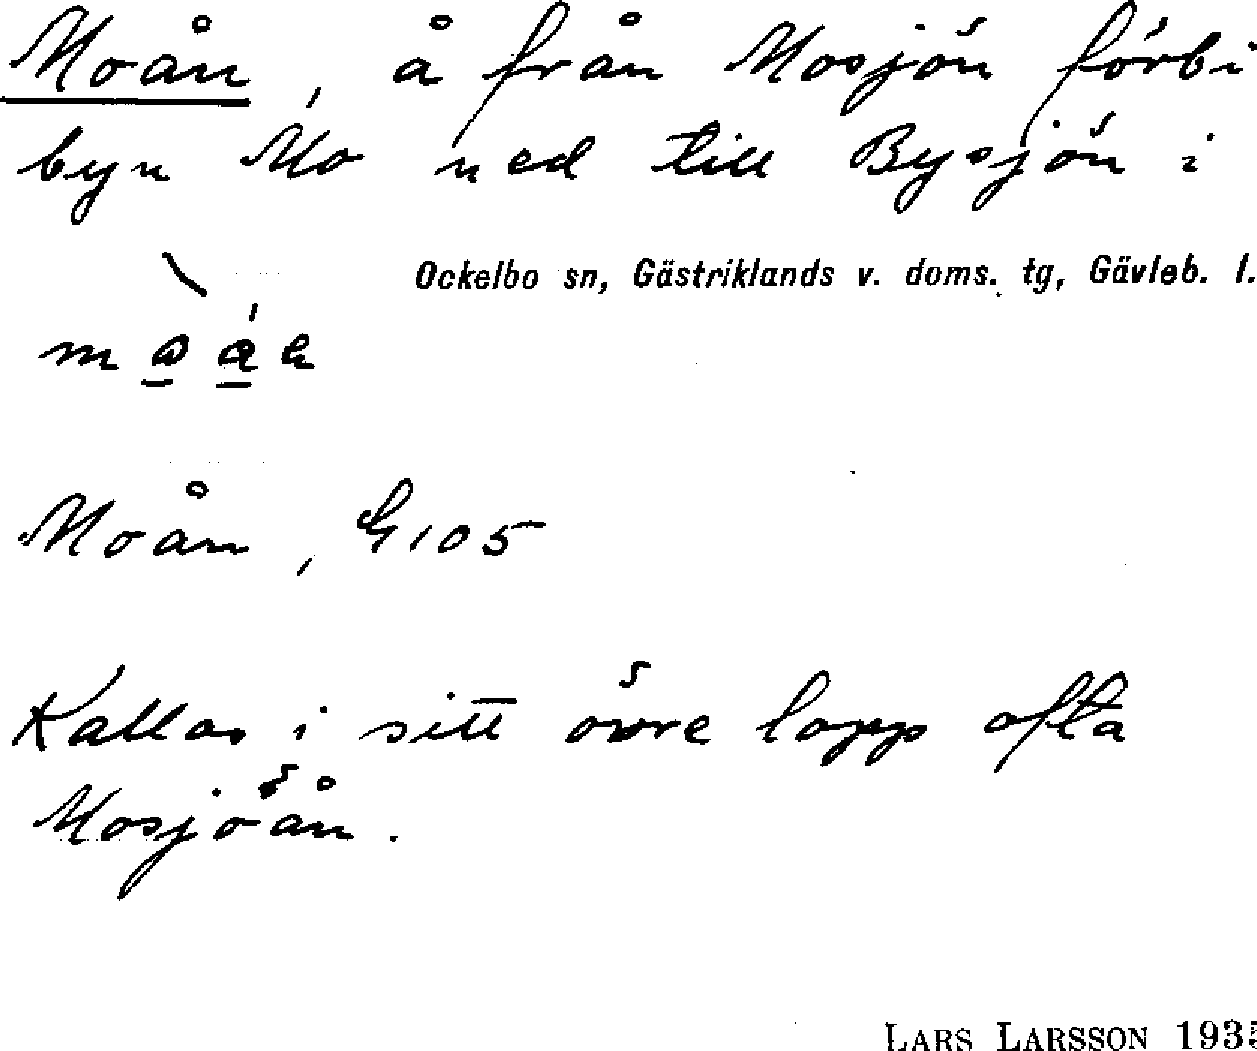 Moån, å från Mosjön förbi
byn Mo ned till Bysjön i
Ockelbo sn, Gästriklands v. doms. tg, Gävleb. l.
Moån, G105
Kallas i sitt övre lopp ofta
Mosjöån.
LARS LARSSON